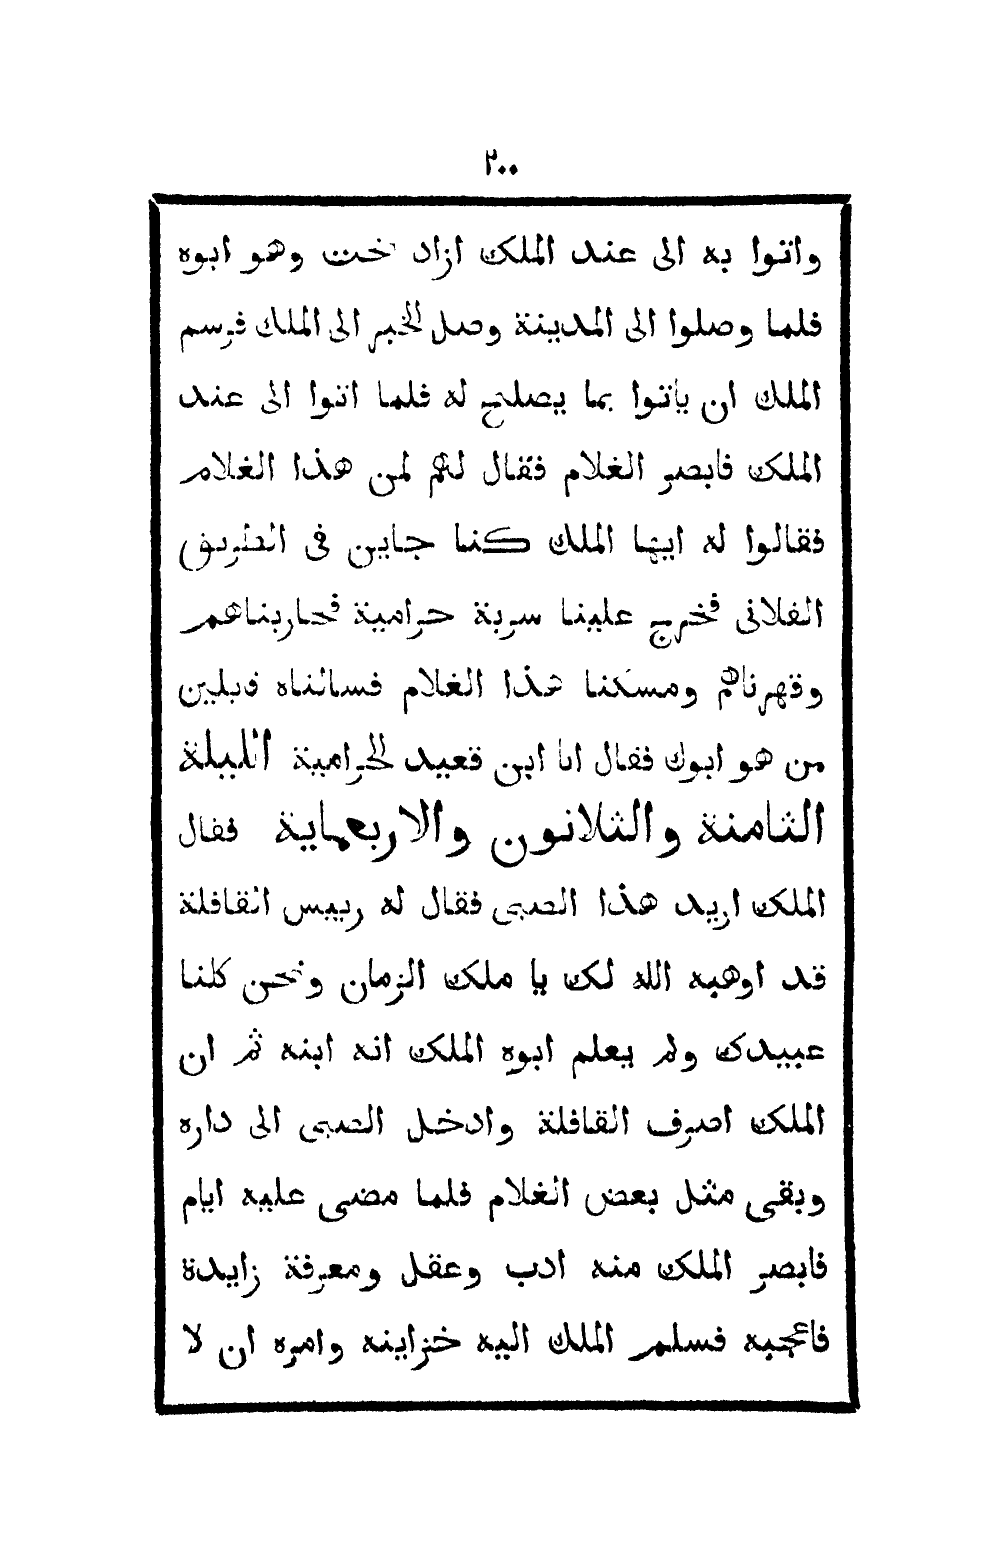 ٢٠٠
واتوا به الى عند الملك ازاد خت وهو ابوه
فلما وصلوا الى المدينة وصل الخبر الى الملك فرسم
الملك ان ياتوا بما يصلح له فلما اتوا الى عند
الملك فابصر الغلام فقال لهم لمن هذا الغلام
فقالوا له ايها الملك كنا جاين فى الطريق
الفلانى فخرج علينا سربة حرامية فحاربناهم
وقهرناهم ومسكنا هذا الغلام فسالناه قبلين
من هو ابوك فقال انا ابن قعيد الحرامية الليلة
الثامنة والثلاثون والاربعماية فقال
الملك اريد هذا الصبى فقال له رييس القافلة
قد اوهبه الله لك يا ملك الزمان ونحن كلنا
عبيدك ولم يعلم ابوه الملك انه ابنه ثم ان
الملك اصرف القافلة وادخل الصبى الى داره
وبقى مثل بعض الغلام فلما مضى عليه ايام
فابصر الملك منه ادب وعقل ومعرفة زايدة
فاعجبه فسلم الملك اليه خزاينه وامره ان لا